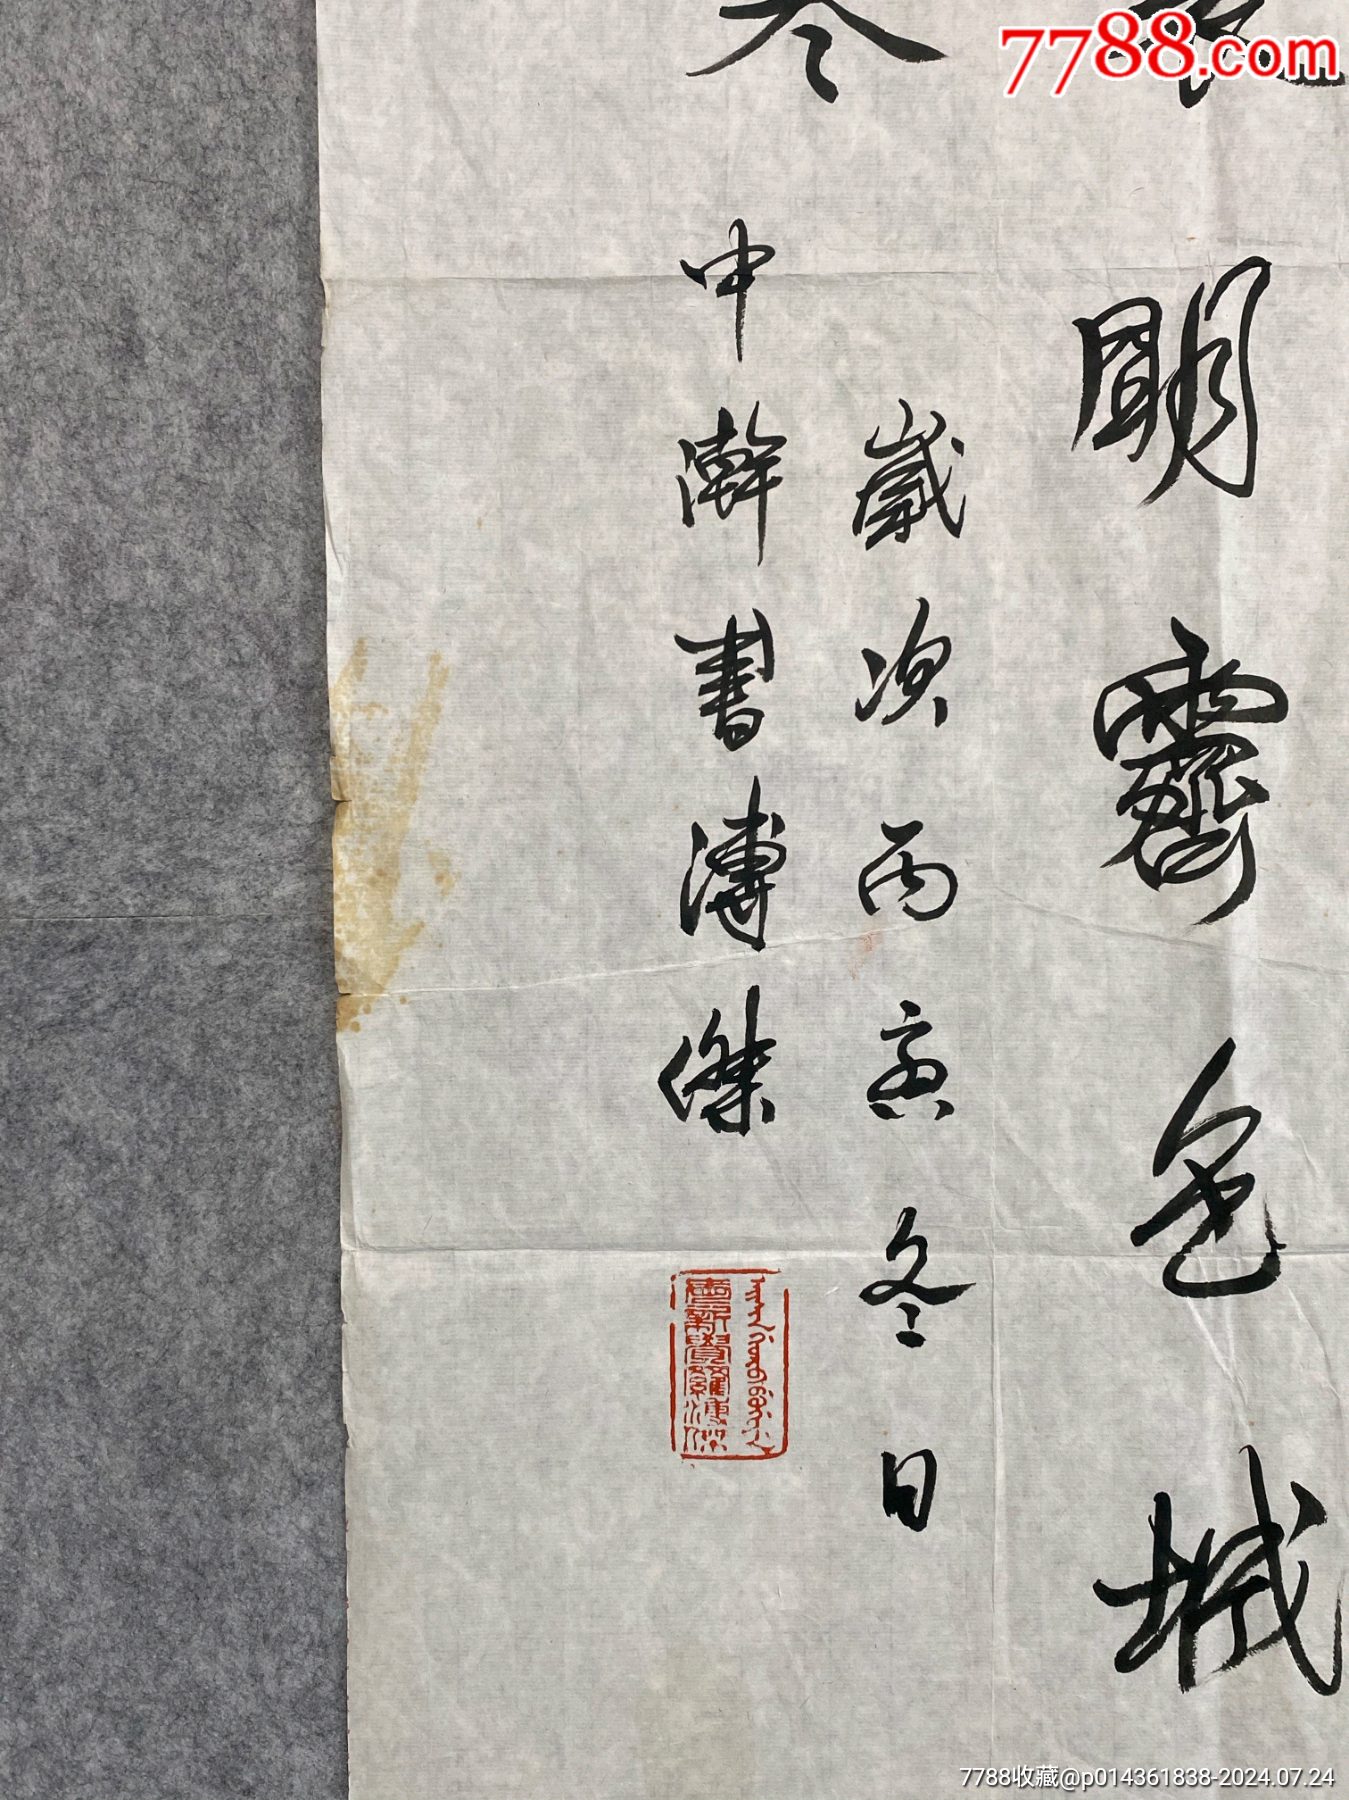 7788.com
明霽色城
歲次丙寅冬日
中瀚書溥傑
愛新覺羅溥傑
7788收藏@p014361838-2024.07.24